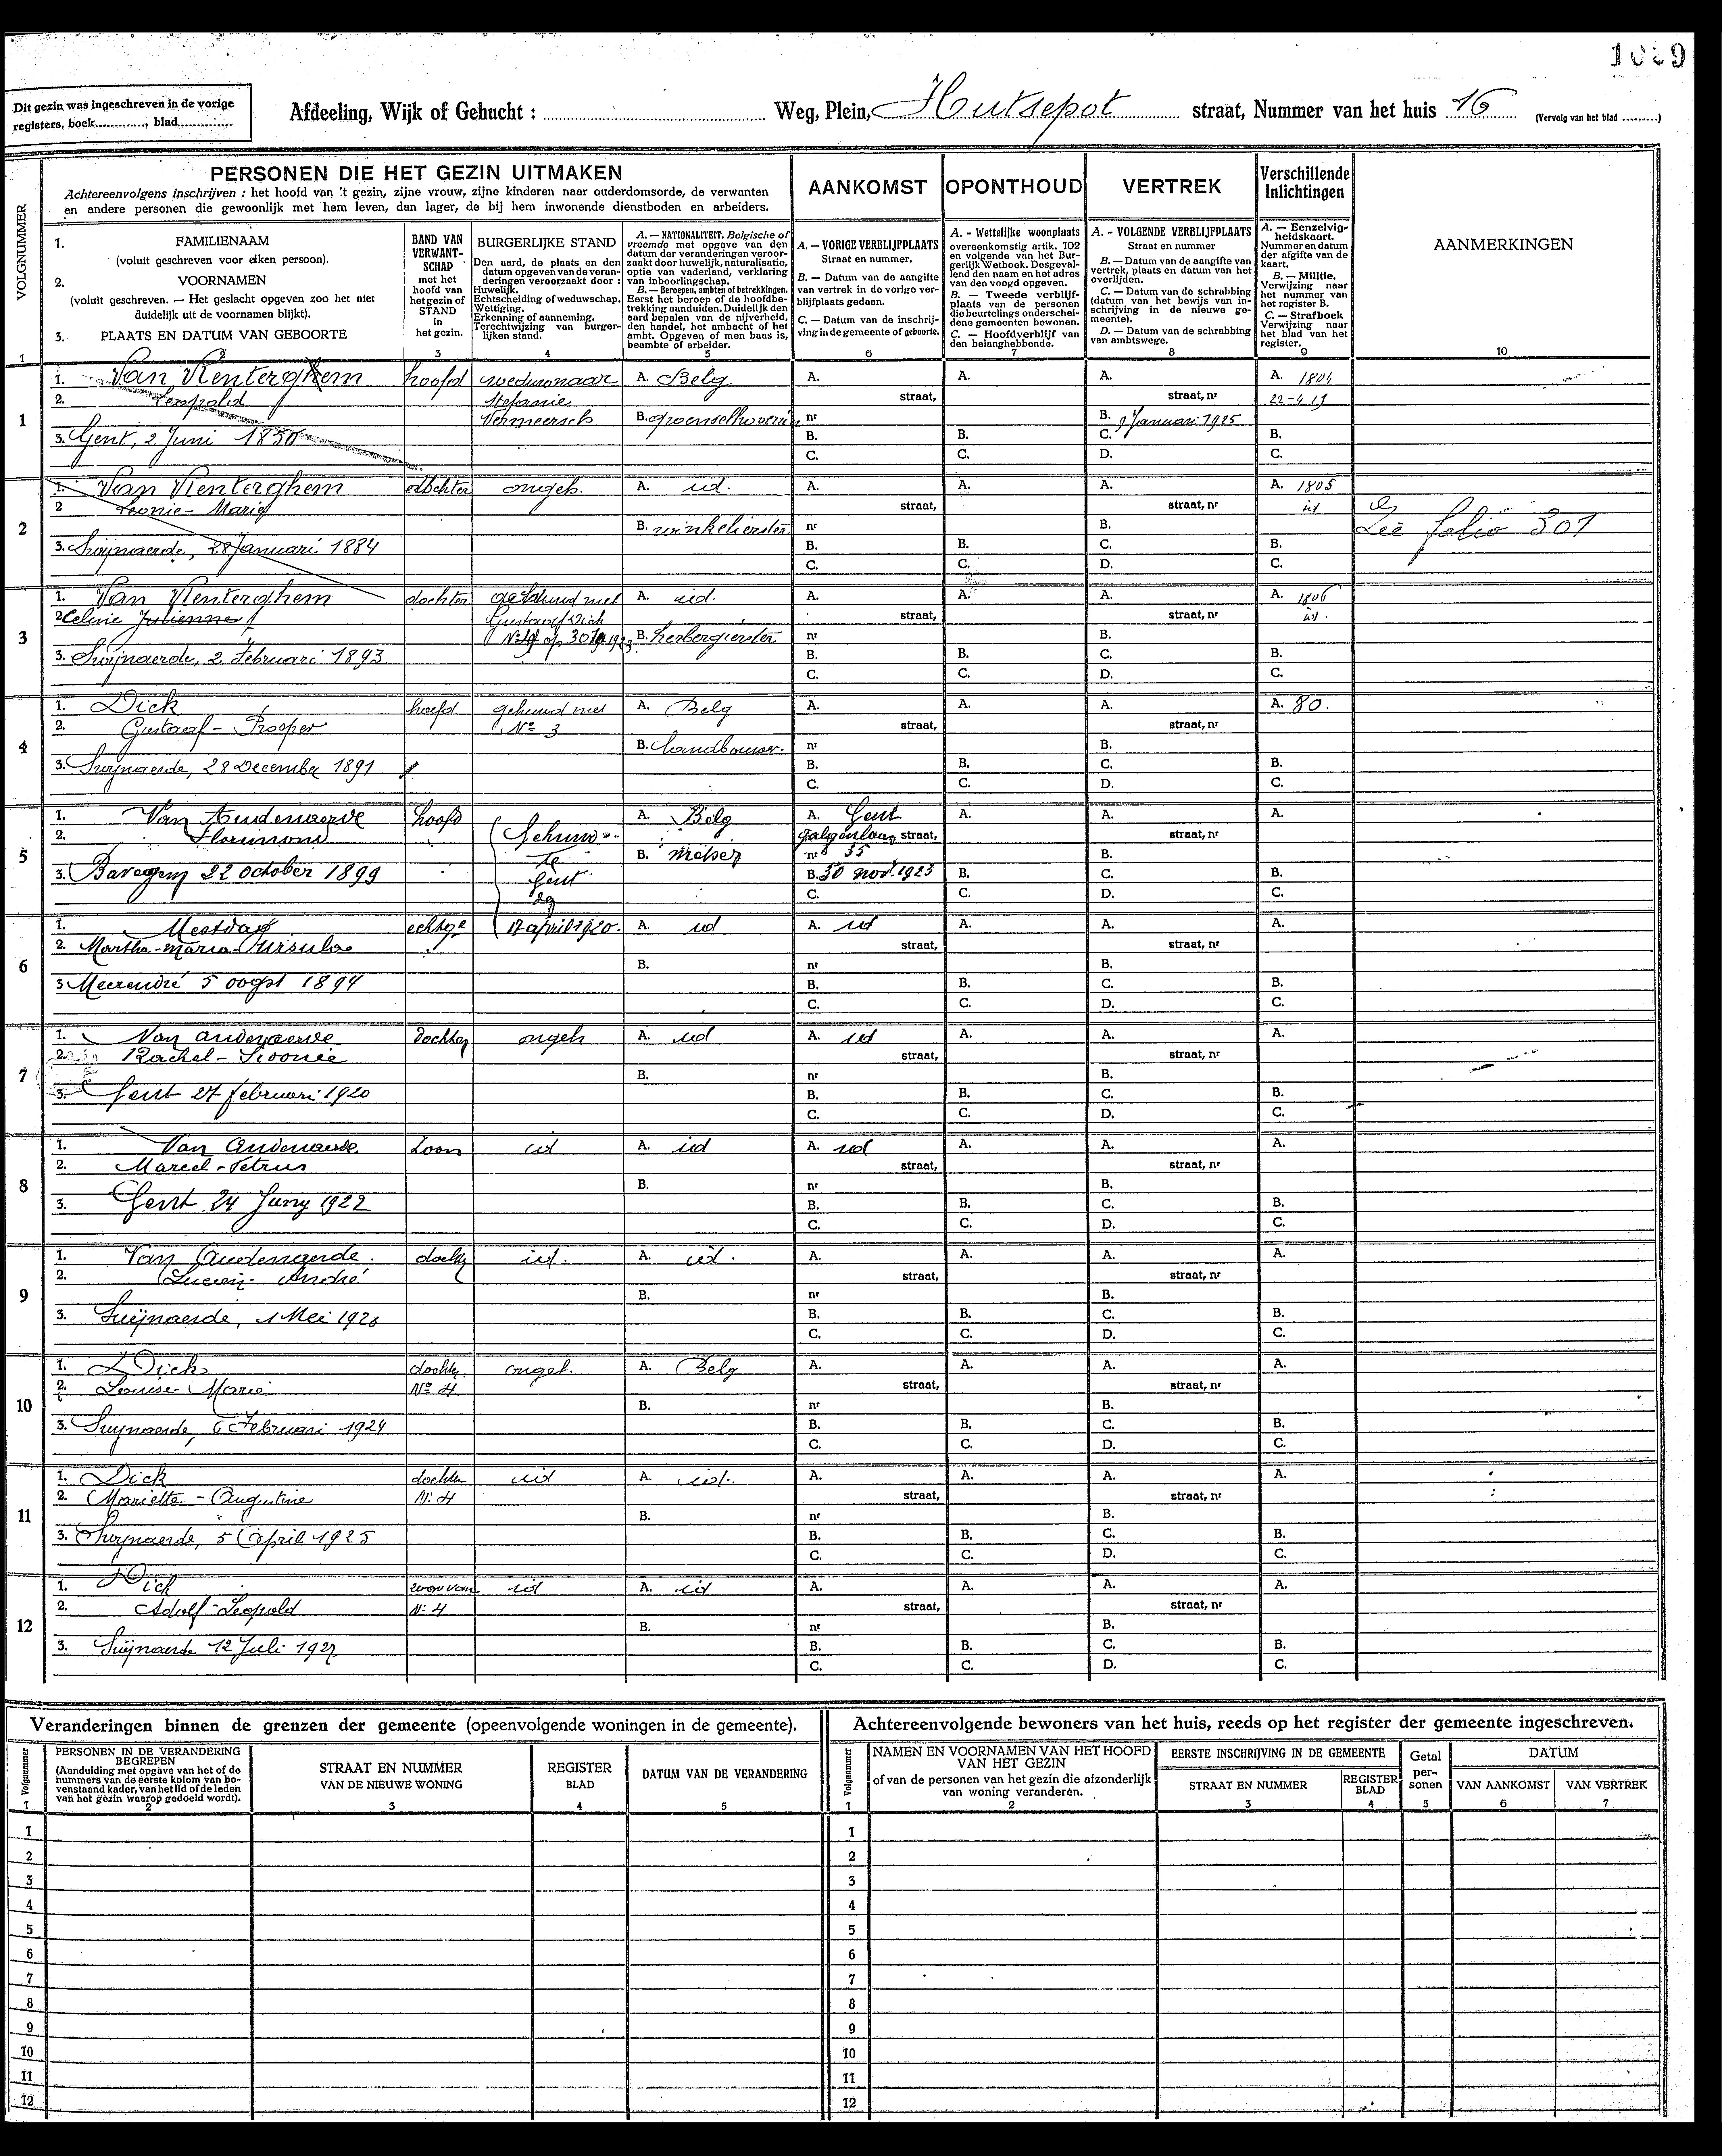 Dit gezin was ingeschreven in de vorige
registers, boek............., blad..............
Afdeeling, Wijk of Gehucht : Weg, Plein, Hutsepot straat, Nummer van het huis 16 (Vervolg van het blad .........)
VOLGNUMMER
PERSONEN DIE HET GEZIN UITMAKEN
Achtereenvolgens inschrijven : het hoofd van 't gezin, zijne vrouw, zijne kinderen naar ouderdomsorde, de verwanten
en andere personen die gewoonlijk met hem leven, dan lager, de bij hem inwonende dienstboden en arbeiders.
AANKOMST
OPONTHOUD
VERTREK
Verschillende
Inlichtingen
1. FAMILIENAAM
(voluit geschreven voor elken persoon).
2. VOORNAMEN
(voluit geschreven. — Het geslacht opgeven zoo het niet
duidelijk uit de voornamen blijkt).
3. PLAATS EN DATUM VAN GEBOORTE
BAND VAN
VERWANT-
SCHAP
met het
hoofd van
het gezin of
STAND
in
het gezin.
BURGERLIJKE STAND
Den aard, de plaats en den
datum opgeven van de veran-
deringen veroorzaakt door :
Huwelijk.
Echtscheiding of weduwschap.
Wettiging.
Erkenning of aanneming.
Terechtwijzing van burger-
lijken stand.
A. — NATIONALITEIT. Belgische of
vreemde met opgave van den
datum der veranderingen veroor-
zaakt door huwelijk, naturalisatie,
optie van vaderland, verklaring
van inboorlingschap.
B. — Beroepen, ambten of betrekkingen.
Eerst het beroep of de hoofdbe-
trekking aanduiden. Duidelijk den
aard bepalen van de nijverheid,
den handel, het ambacht of het
ambt. Opgeven of men baas is,
beambte of arbeider.
A. — VORIGE VERBLIJFPLAATS
Straat en nummer.
B. — Datum van de aangifte
van vertrek in de vorige ver-
blijfplaats gedaan.
C. — Datum van de inschrij-
ving in de gemeente of geboorte.
A. - Wettelijke woonplaats
overeenkomstig artik. 102
en volgende van het Bur-
gerlijk Wetboek. Desgeval-
lend den naam en het adres
van den voogd opgeven.
B. — Tweede verblijf-
plaats van de personen
die beurtelings onderschei-
dene gemeenten bewonen.
C. — Hoofdverblijf van
den belanghebbende.
A. - VOLGENDE VERBLIJFPLAATS
Straat en nummer
B. — Datum van de aangifte van
vertrek, plaats en datum van het
overlijden.
C. — Datum van de schrabbing
(datum van het bewijs van in-
schrijving in de nieuwe ge-
meente).
D. — Datum van de schrabbing
van ambtswege.
A. — Eenzelvig-
heidskaart.
Nummer en datum
der afgifte van de
kaart.
B. — Militie.
Verwijzing naar
het nummer van
het register B.
C. — Strafboek
Verwijzing naar
het blad van het
register.
AANMERKINGEN
1 2 3 4 5 6 7 8 9 10
1
1. Van Renterghem hoofd weduwnaar A. Belg A. A. A. A. 1804
2. Leopold Stefanie straat, straat, nr 22-4 19
Vermeersch B. groenselhovenier nr B. 9 Januari 1925
3. Gent, 2 Juni 1850 B. B. C. B.
C. C. D. C.
2
1. Van Renterghem dochter ongeh. A. id. A. A. A. A. 1805
2 Leonie-Marie straat, straat, nr id
B. winkelierster nr B. Zee folio 301
3. Swijnaerde, 28 Januari 1884 B. B. C. B.
C. C. D. C.
3
1. Van Renterghem dochter gehuwd met A. id. A. A. A. A. 1806
2 Celine Julienne Gustaaf Dick straat, straat, nr id.
B. herbergierster nr B.
3. Swijnaerde, 2 Februari 1893. B. B. C. B.
C. C. D. C.
4
1. Dick hoofd gehuwd met A. Belg A. A. A. A. 80.
2. Gustaaf-Prosper No 3 straat, straat, nr
B. landbouwer. nr B.
3. Swijnaerde, 28 December 1891 B. B. C. B.
C. C. D. C.
5
1. Van Audenaerde hoofd A. Belg A. Gent A. A. A.
2. Florimond Gehuwd straat, straat, nr
te B. metser nr 35 B.
3. Bavegem 22 october 1899 Gent B. 30 nov. 1923 B. C. B.
C. C. D. C.
6
1. Mestdag echtge 17 april 1920. A. id A. id A. A. A.
2. Martha-Maria-Ursula straat, straat, nr
B. nr B.
3 Meerendré 5 oogst 1894 B. B. C. B.
C. C. D. C.
7
1. Van audenaerde dochter ongeh A. id A. id A. A. A.
2. Rachel-Leonie straat, straat, nr
B. nr B.
3. Gent 27 februari 1920 B. B. C. B.
C. C. D. C.
8
1. Van Audenaerde Zoon id A. id A. id A. A. A.
2. Marcel-Petrus straat, straat, nr
B. nr B.
3. Gent 24 Juny 1922 B. B. C. B.
C. C. D. C.
9
1. Van Audenaerde. dochter id. A. id. A. A. A. A.
2. Lucien-André straat, straat, nr
B. nr B.
3. Swijnaerde, 1 Mei 1926 B. B. C. B.
C. C. D. C.
10
1. Dick dochter ongeh. A. Belg A. A. A. A.
2. Louise-Marie No 4. straat, straat, nr
B. nr B.
3. Swynaerde, 6 Februari 1924 B. B. C. B.
C. C. D. C.
11
1. Dick dochter id A. id. A. A. A. A.
2. Mariette-Augustine No 4 straat, straat, nr
B. nr B.
3. Swynaerde, 5 April 1925 B. B. C. B.
C. C. D. C.
12
1. Dick zoon van id A. id A. A. A. A.
2. Adolf-Leopold No 4 straat, straat, nr
B. nr B.
3. Swijnaerde 12 Juli 1927 B. B. C. B.
C. C. D. C.
Veranderingen binnen de grenzen der gemeente (opeenvolgende woningen in de gemeente).
Volgnummer
PERSONEN IN DE VERANDERING
BEGREPEN
(Aanduiding met opgave van het of de
nummers van de eerste kolom van bo-
venstaand kader, van het lid of de leden
van het gezin waarop gedoeld wordt).
STRAAT EN NUMMER
VAN DE NIEUWE WONING
REGISTER
BLAD
DATUM VAN DE VERANDERING
1 2 3 4 5
1
2
3
4
5
6
7
8
9
10
11
12
Achtereenvolgende bewoners van het huis, reeds op het register der gemeente ingeschreven.
Volgnummer
NAMEN EN VOORNAMEN VAN HET HOOFD
VAN HET GEZIN
of van de personen van het gezin die afzonderlijk
van woning veranderen.
EERSTE INSCHRIJVING IN DE GEMEENTE
STRAAT EN NUMMER
REGISTER
BLAD
Getal
per-
sonen
DATUM
VAN AANKOMST
VAN VERTREK
1 2 3 4 5 6 7
1
2
3
4
5
6
7
8
9
10
11
12